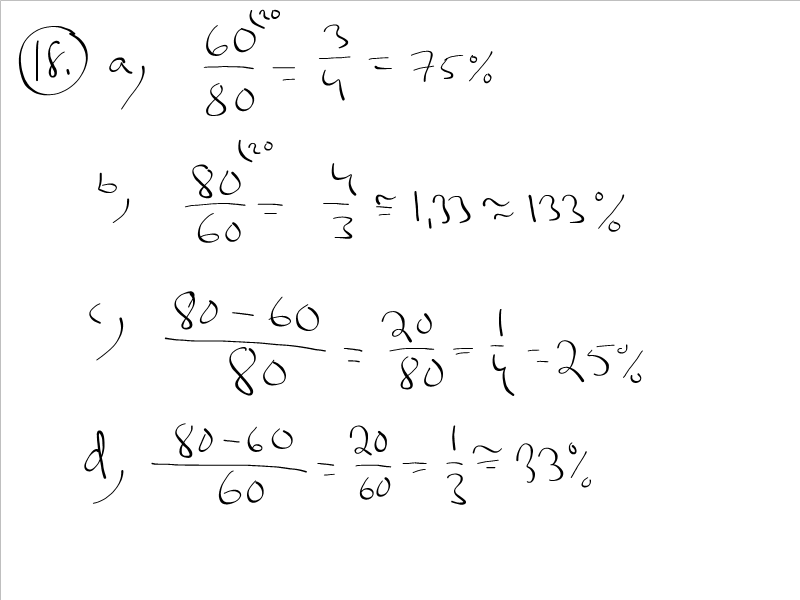 18. a) 60/80 (20 = 3/4 = 75%
b) 80/60 (20 = 4/3 ≅ 1,33 ≈ 133%
c) 80-60/80 = 20/80 = 1/4 = 25%
d) 80-60/60 = 20/60 = 1/3 ≅ 33%